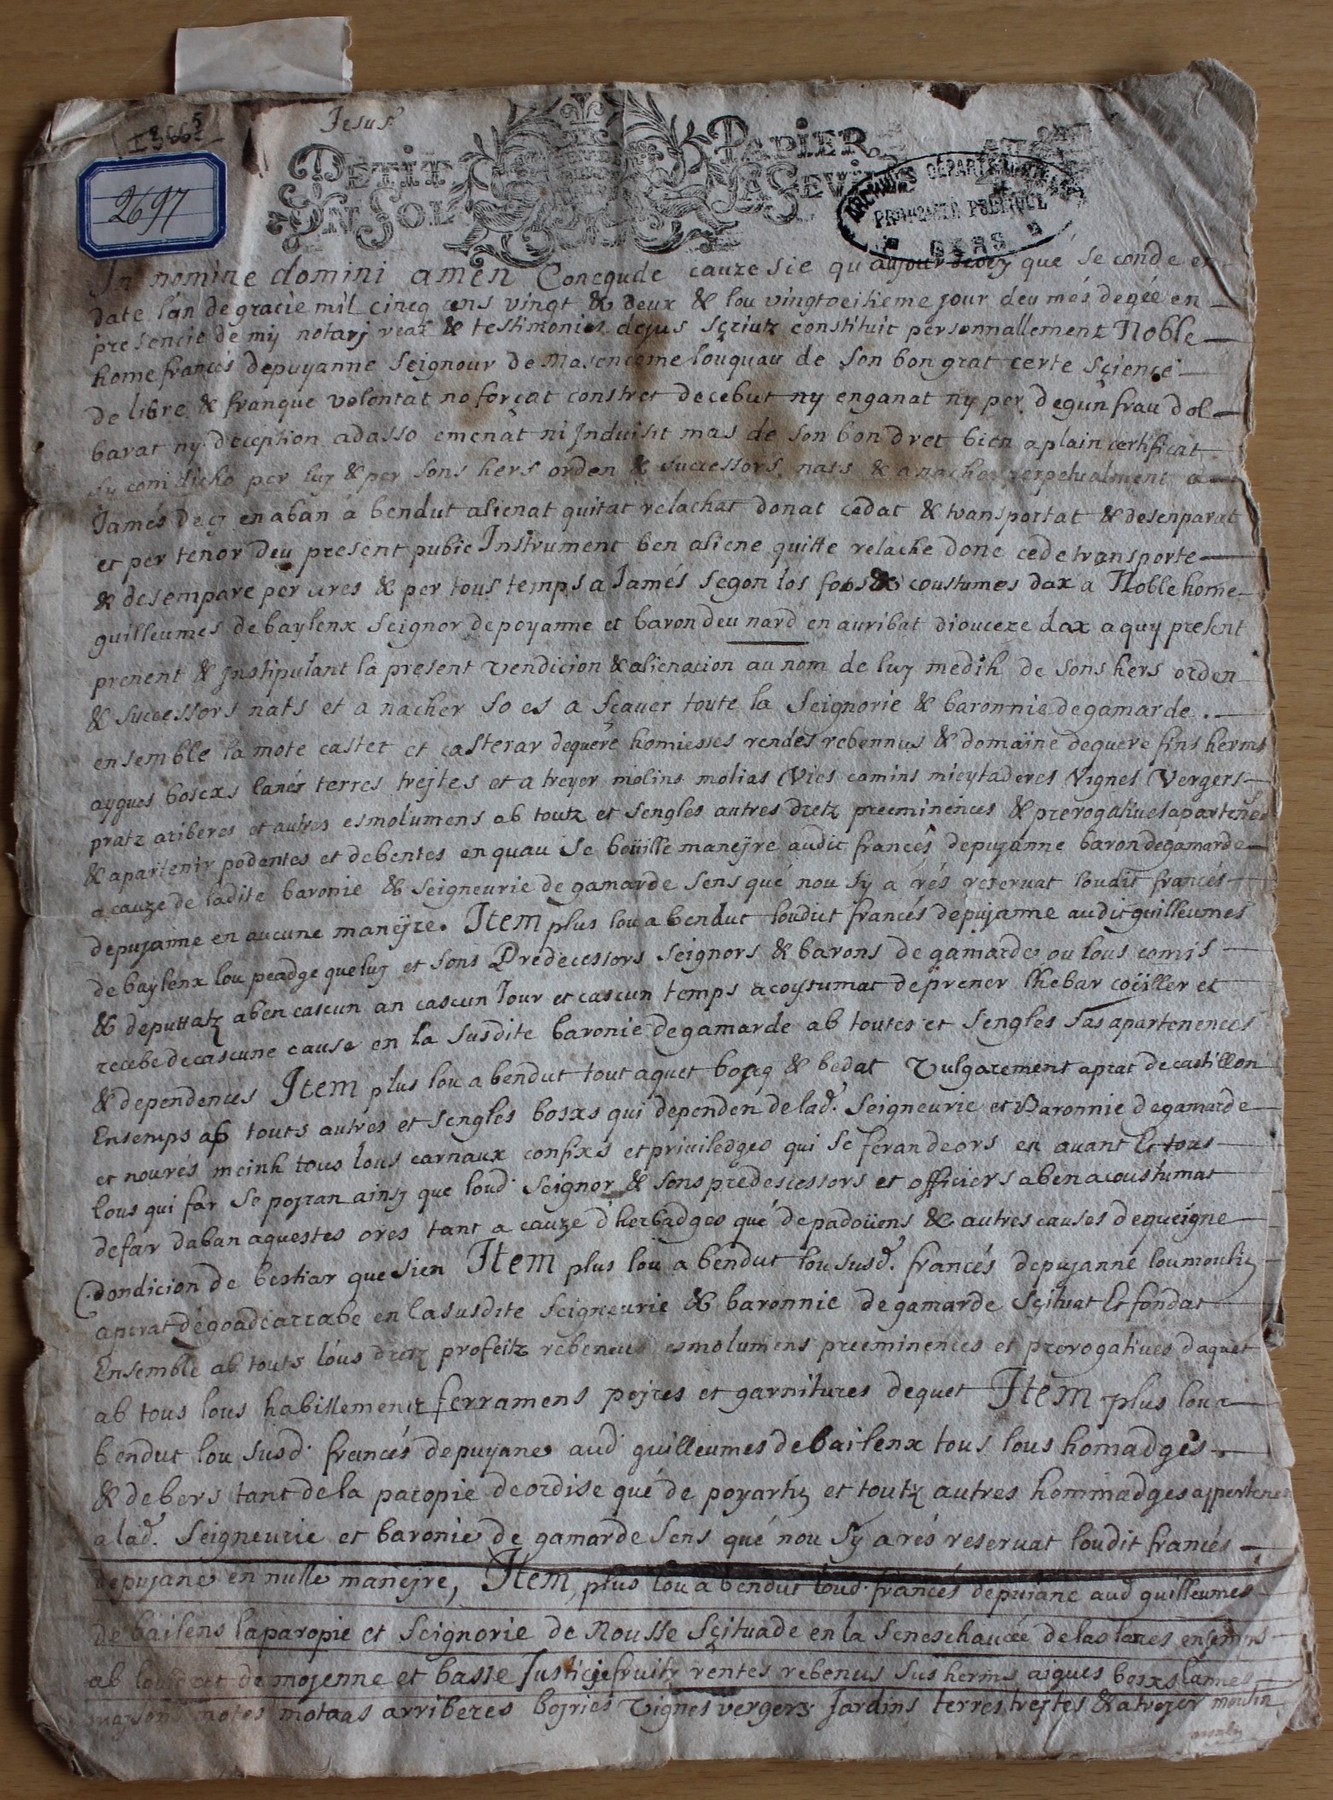 Jesus
PETIT PAPIER
UN SOL LA FEVILLE
ARCHIVES DÉPARTEMENTALES
PROPRIÉTÉ PUBLIQUE
GERS
2697
In nomine domini amen Conegude cauze sie qu'aujourdevy qué se conde en
date l'an de gracie mil cincq cens vingt & deux & lou vingtoeitieme jour deu més de gée en
presencie de my notarj real & testimonis dejus scriutz constituit personnallement Noble
home francés depuyanne seignour de Masencome louquau de son bon grat certe sciencie
de libre & franque volontat no forçat constret decebut ny enganat ny per degun frau dol
barat ny deception adasso emenat ni Induisit mas de son bon dret bien a plain certificat
sy com dicho per luy & per sons hers orden & successors nats & a nacher perpetualment a
Jamés de cy en aban a bendut alienat quitat relachat donat cedat & transportat & desenparat
et per tenor deu present pubic Instrument ben aliene quitte relache done cede transporte
& desempare per ares & per tous temps a Jamés segon los fors & coustumes dax a Noble home
guilleumes de baylenx seignor depoyanne et baron deu nard en auribat diouceze dax aquy present
prenent & Instipulant la present vendicion & alienacion au nom de luy medih de sons hers orden
& successors nats et a nacher so es a sçauer toute la seignorie & baronnie degamarde.
ensemble la mote castet et casterar dequere homiesses rendes rebennus & domaine dequere fins herms
aygues boscxs lanes terres trejtes et a treyer molins molias Vies camins mieytaderes Vignes Vergers
pratz ariberes et autres esmolumens ab toutz et sengles autres dretz preeminences & prerogatiues apartenes
& apartenir podentes et debentes en quau se boüille manejre audit francés depuyanne baron degamarde
a cauze de ladite baronie & seigneurie de gamarde sens qué nou sy a rés reseruat loudit francés
depujanne en aucune manejre. Item plus lou a bendut loudit francés depujanne audit guilleumes
de baylenx lou peadge que luy et sons Predecessors seignors & barons de gamarde ou lous comis
& deputtatz aben cascun an cascun Jour et cascun temps acoustumat deprener lhebar coüiller et
recebe de cascune cause en la susdite baronie degamarde ab toutes et sengles sas apartenences
& dependences Item plus lou a bendut tout aquet boscq & bedat Vulgarement aprat de castillon
Ensemps ab touts autres et sengles boscxs qui dependen de lad. seigneurie et Baronnie degamarde
et nourés meinh tous lous carnaux confixs et priuiledges qui se feran deors en auant Et tous
lous qui far se pojran ainsy que loud. seignor & sons predescessors et officiers aben acoustumat
defar daban aquestes ores tant a cauze d'herbadges qué de padoüens & autres causes dequeigne
Condicion de bestiar que sien Item plus lou a bendut lou susd. francés depujanne loumoulin
aperat degoadearrabe en la susdite seigneurie & baronnie de gamarde scituat Et fondat
Ensemble ab touts lous dretz profeitz rebenus esmolumens preeminences et prerogatiues daquet
ab tous lous habillementz ferramens pejres et garnitures dequet Item plus lou a
bendut lou susd. francés depuyane aud. guilleumes de bailenx tous lous homadges
& debers tant de la paropie deordise qué de poyartin et toutz autres hommadges appertenen
a lad. seigneurie et baronie de gamarde sens qué nou sy a rés reseruat loudit francés
depujane en nulle manejre, Item plus lou a bendut loud. francés depujane aud guilleumes
de bailens laparopie et seignorie de Nousse scituade en la seneschaucée de las lanes ensemps
ab lou dret de mojenne et basse Justicie fruitz rentes rebenus fins herms aigues boscxs lannes
majsons motes motaas arriberes bojries Vignes vergers Jardins terres trejtes & atrejer moulin